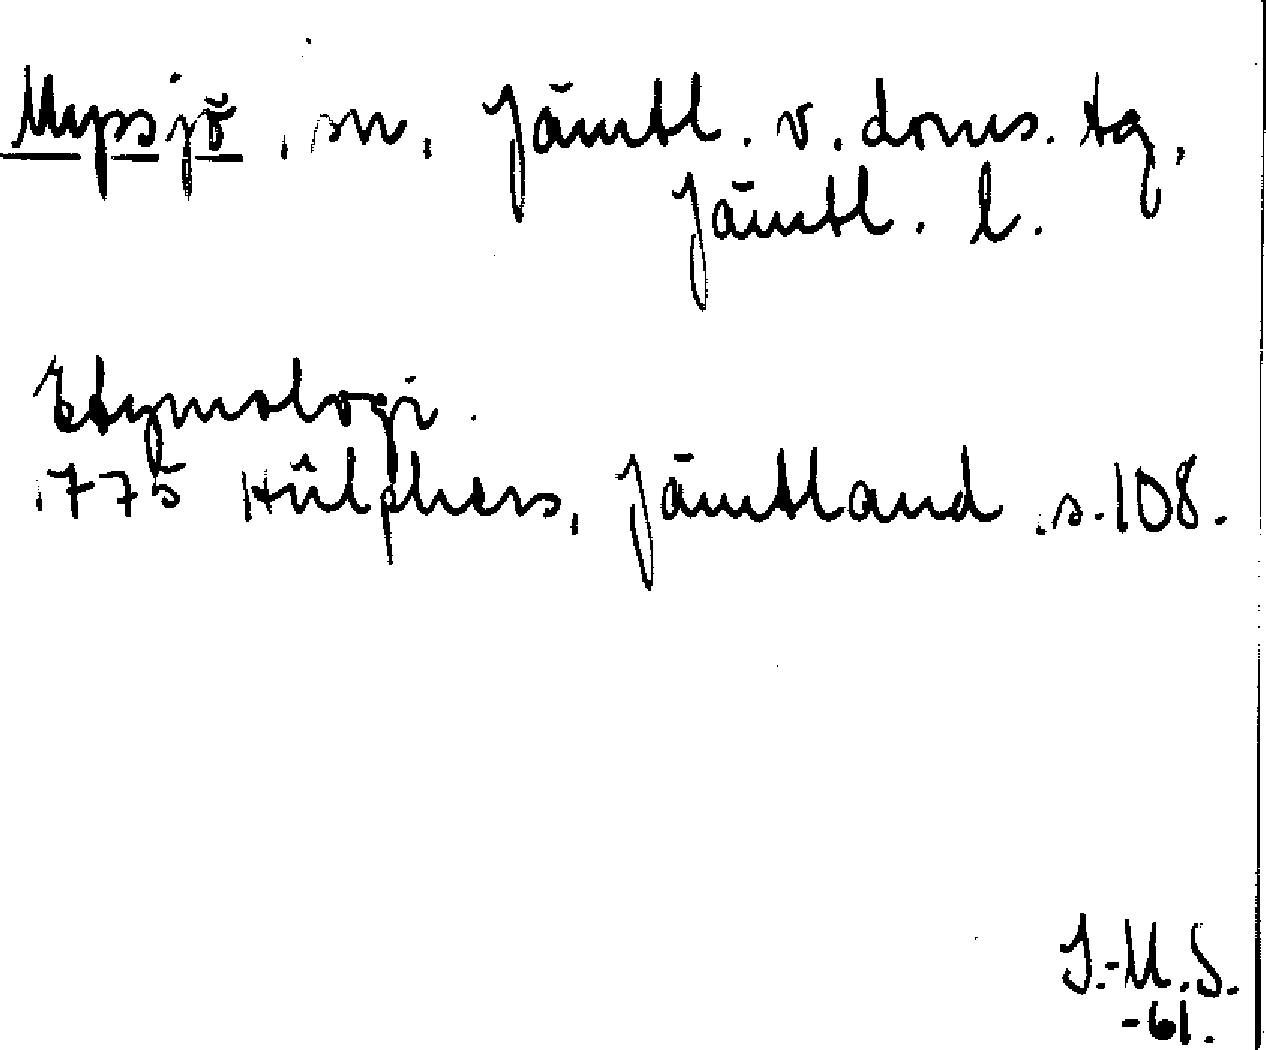 Myssjö, sn, Jämtl. v. doms. tg,
Jämtl. l.
Etymologi.
1775 Hülphers, Jämtland s. 108.
I.-M.S.
-61.